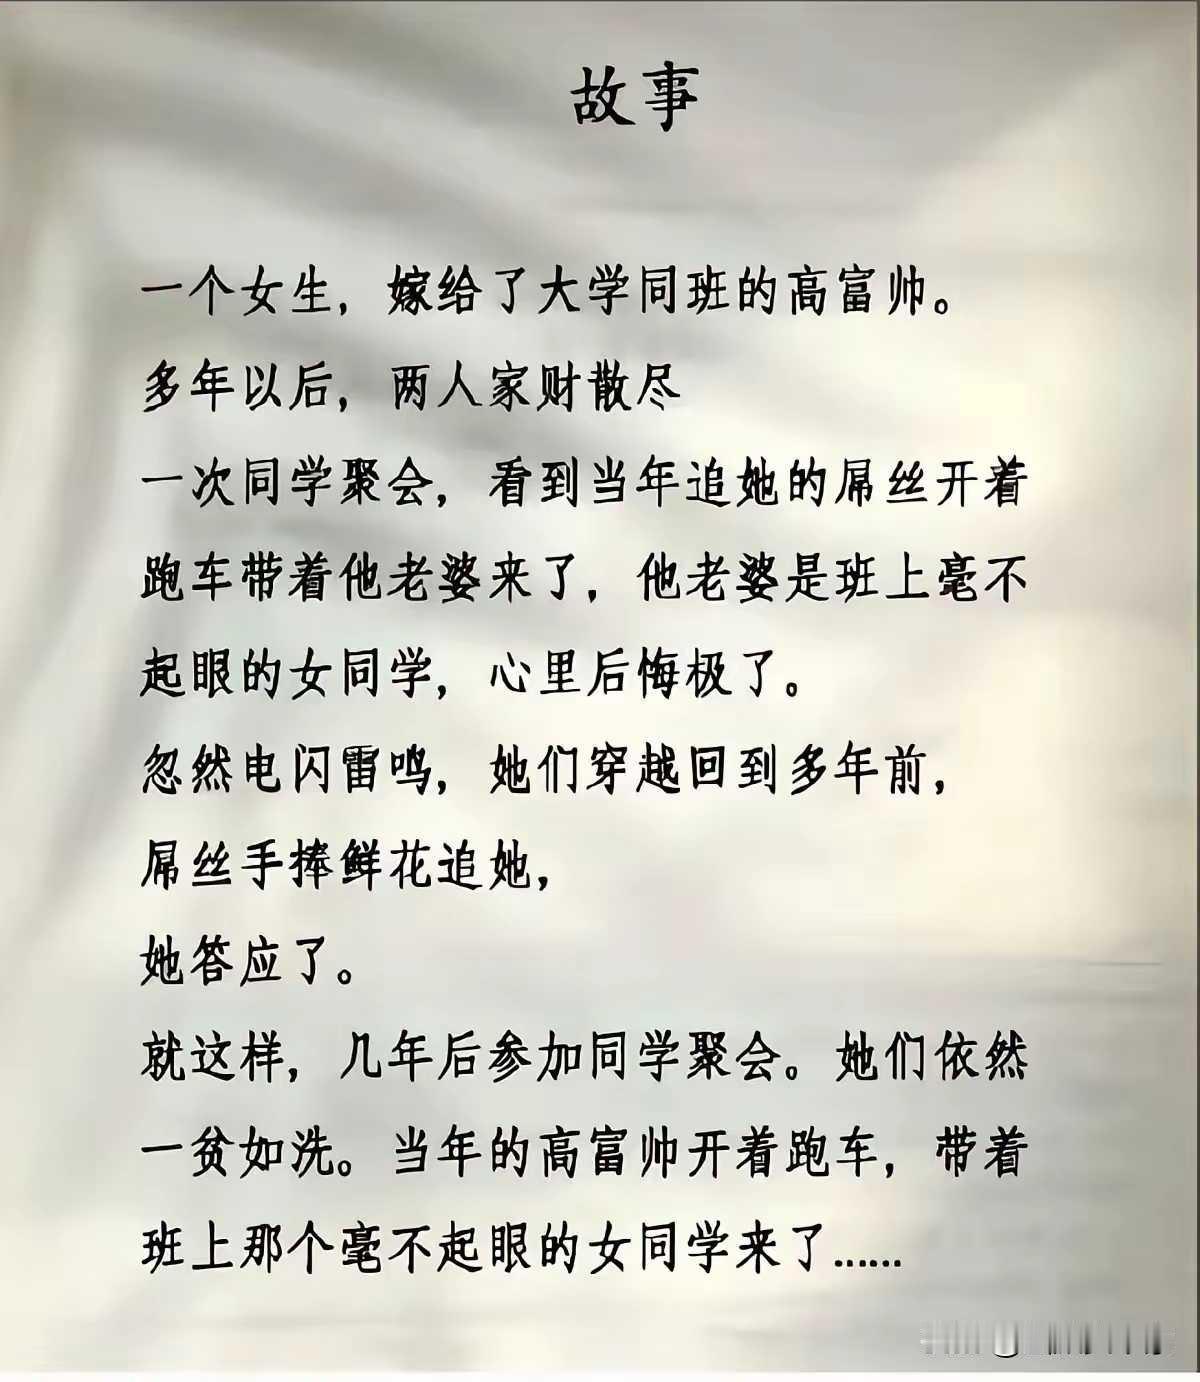 故事
一个女生，嫁给了大学同班的高富帅。
多年以后，两人家财散尽
一次同学聚会，看到当年追她的屌丝开着
跑车带着他老婆来了，他老婆是班上毫不
起眼的女同学，心里后悔极了。
忽然电闪雷鸣，她们穿越回到多年前，
屌丝手捧鲜花追她，
她答应了。
就这样，几年后参加同学聚会。她们依然
一贫如洗。当年的高富帅开着跑车，带着
班上那个毫不起眼的女同学来了……